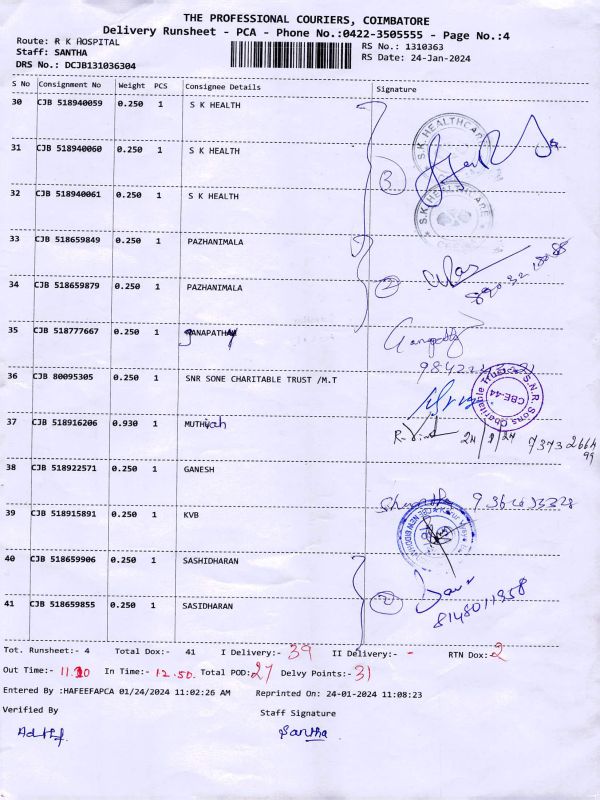 THE PROFESSIONAL COURIERS, COIMBATORE
Delivery Runsheet - PCA - Phone No.:0422-3505555 - Page No.:4
Route: R K HOSPITAL
RS No.: 1310363
Staff: SANTHA
RS Date: 24-Jan-2024
DRS No.: DCJB131036304
S No Consignment No Weight PCS Consignee Details Signature
30 CJB 518940059 0.250 1 S K HEALTH
31 CJB 518940060 0.250 1 S K HEALTH
S.K. HEALTHCARE
3
32 CJB 518940061 0.250 1 S K HEALTH
S.K. HEALTHCARE
33 CJB 518659849 0.250 1 PAZHANIMALA
34 CJB 518659879 0.250 1 PAZHANIMALA
2
35 CJB 518777667 0.250 1 GANAPATHY
36 CJB 80095305 0.250 1 SNR SONE CHARITABLE TRUST /M.T
S.N.R. Sons Charitable Trust
CBE-44
37 CJB 518916206 0.930 1 MUTHIyah
24/1/24
38 CJB 518922571 0.250 1 GANESH
39 CJB 518915891 0.250 1 KVB
40 CJB 518659906 0.250 1 SASHIDHARAN
2
41 CJB 518659855 0.250 1 SASIDHARAN
8148011958
Tot. Runsheet:- 4 Total Dox:- 41 I Delivery:- 39 II Delivery:- - RTN Dox:- 2
Out Time:- 11.10 In Time:- 12.50. Total POD:- 27 Delvy Points:- 31
Entered By :HAFEEFAPCA 01/24/2024 11:02:26 AM Reprinted On: 24-01-2024 11:08:23
Verified By Staff Signature
Santha